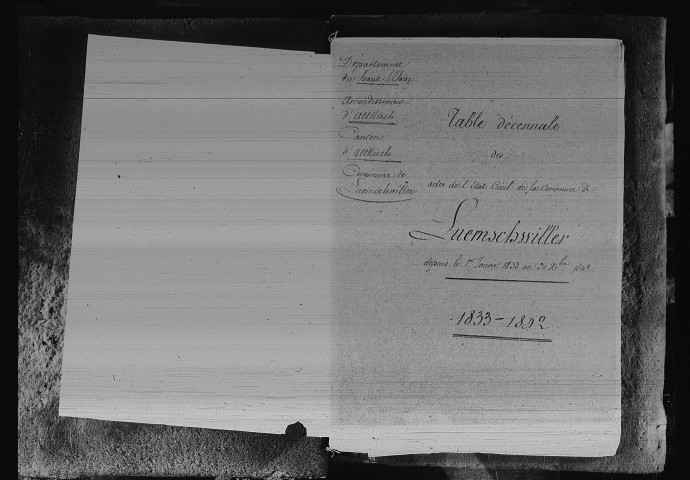 Département
du haut-Rhin
Arrondissement
d'altkirch
Canton
d'altkirch
Commune de
Luemschwiller
Table décennale
des
actes de l'Etat Civil de la Commune de
Luemschwiller
depuis le 1er Janvier 1833 au 31 Xbre 1842
1833-1842